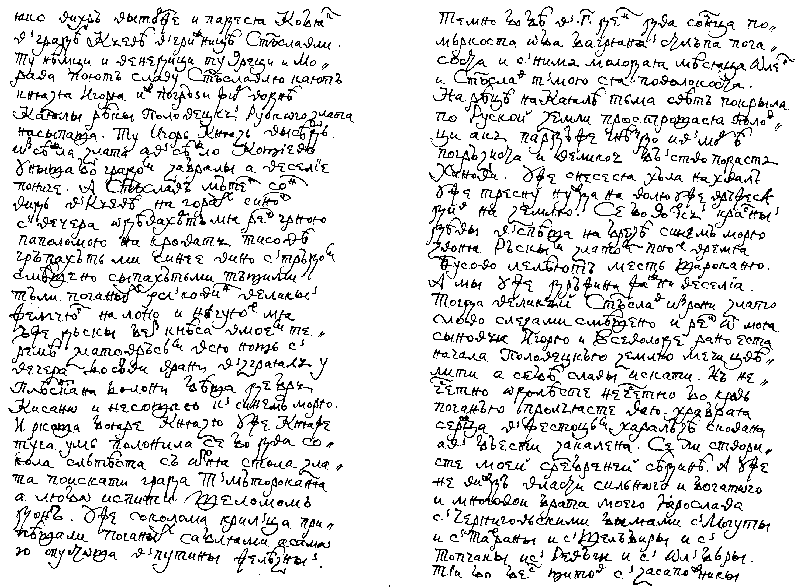 юко вихръ выторже и падеся Кобя
въ градѣ Кыевѣ въ гридницѣ Стъславли.
Ту нѣмци и венедици ту Греци и Мо„
рава поютъ славу Стъславлю кають
князя Игоря иже погрузи жиръ во днѣ
Каялы рѣкы Половецкыя Рускаго злата
насыпаша. Ту Игорь Князь высѣдѣ
изъ сѣдла злата а въ сѣдло Кощіево
уныша бо градом забралы а веселіе
пониче. А Стъславъ мутен сон
видѣ въ Кыевѣ на горах си ноч
съ вечера одѣвахъте мя рече чрною
паполомою на кровати тисовѣ
чръпахуть ми синее вино с трудом
смѣшено сыпахутьми тъщими
тулы поганых тлъковин великыи
женчюг на лоно и нѣгуют мя
уже дъскы без кнѣса вмоем те„
ремѣ златовръсѣм всю нощь с
вечера босуви врани възграяху у
Плѣсньска на болони бѣша дебрь
Кисаню и несошлю къ синему морю.
И ркоша бояре Князю уже Княже
туга умь полонила се бо два со„
кола слѣтѣста съ отня стола зла„
та поискати града Тьмутороканя
а любо испити Шеломомь
Дону. Уже соколома крилца при„
пѣшали поганых саблями а сама„
ю опуташа въ путины желѣзны.
Темно бо бѣ въ Г҃ ден два солнца по„
мѣркоста оба багряная стлъпа пога„
соста и с нима молодая мѣсяца Олег
и Стъслав тъмою ся поволокоста.
На рѣцѣ на Каялѣ тьма свѣт покрыла
по Руской земли прострошася поло„
вци акы пардуже гнѣздо и в морѣ
погрузиста и великое буиство подаста
Хинови. Уже снесеся хула на хвалу
уже тресну нужда на волю уже връжеся
див на землю. Се бо готския красныя
дѣвы въспѣша на брезѣ синему морю
звоня Рускым златом поют время
Бусово лелѣютъ месть Шароканю.
А мы уже дружина жадни веселія.
Тогда великый Стъслав изрони злато
слово слезами смѣшено и рече о моя
сыновчя Игорю и Всеволоде рано еста
начала Половецкую землю мечи цвѣ„
лити а себѣ славы искати. Нъ не„
честно одолѣсте нечестно бо кровь
поганую проліясте ваю храбрая
сердца въ жестоцем харалузѣ скована
а въ буести закалена. Се ли створи„
сте моей сребреней сѣдинѣ. А уже
не вижду власти сильнаго и богатаго
и многовои брата моего Ярослава
с Черниговьскими былями с Могуты
и с Татраны и с Шельбиры и с
Топчакы и с Ревугы и с Ольберы.
Тіи бо бес щитов с засапожникы